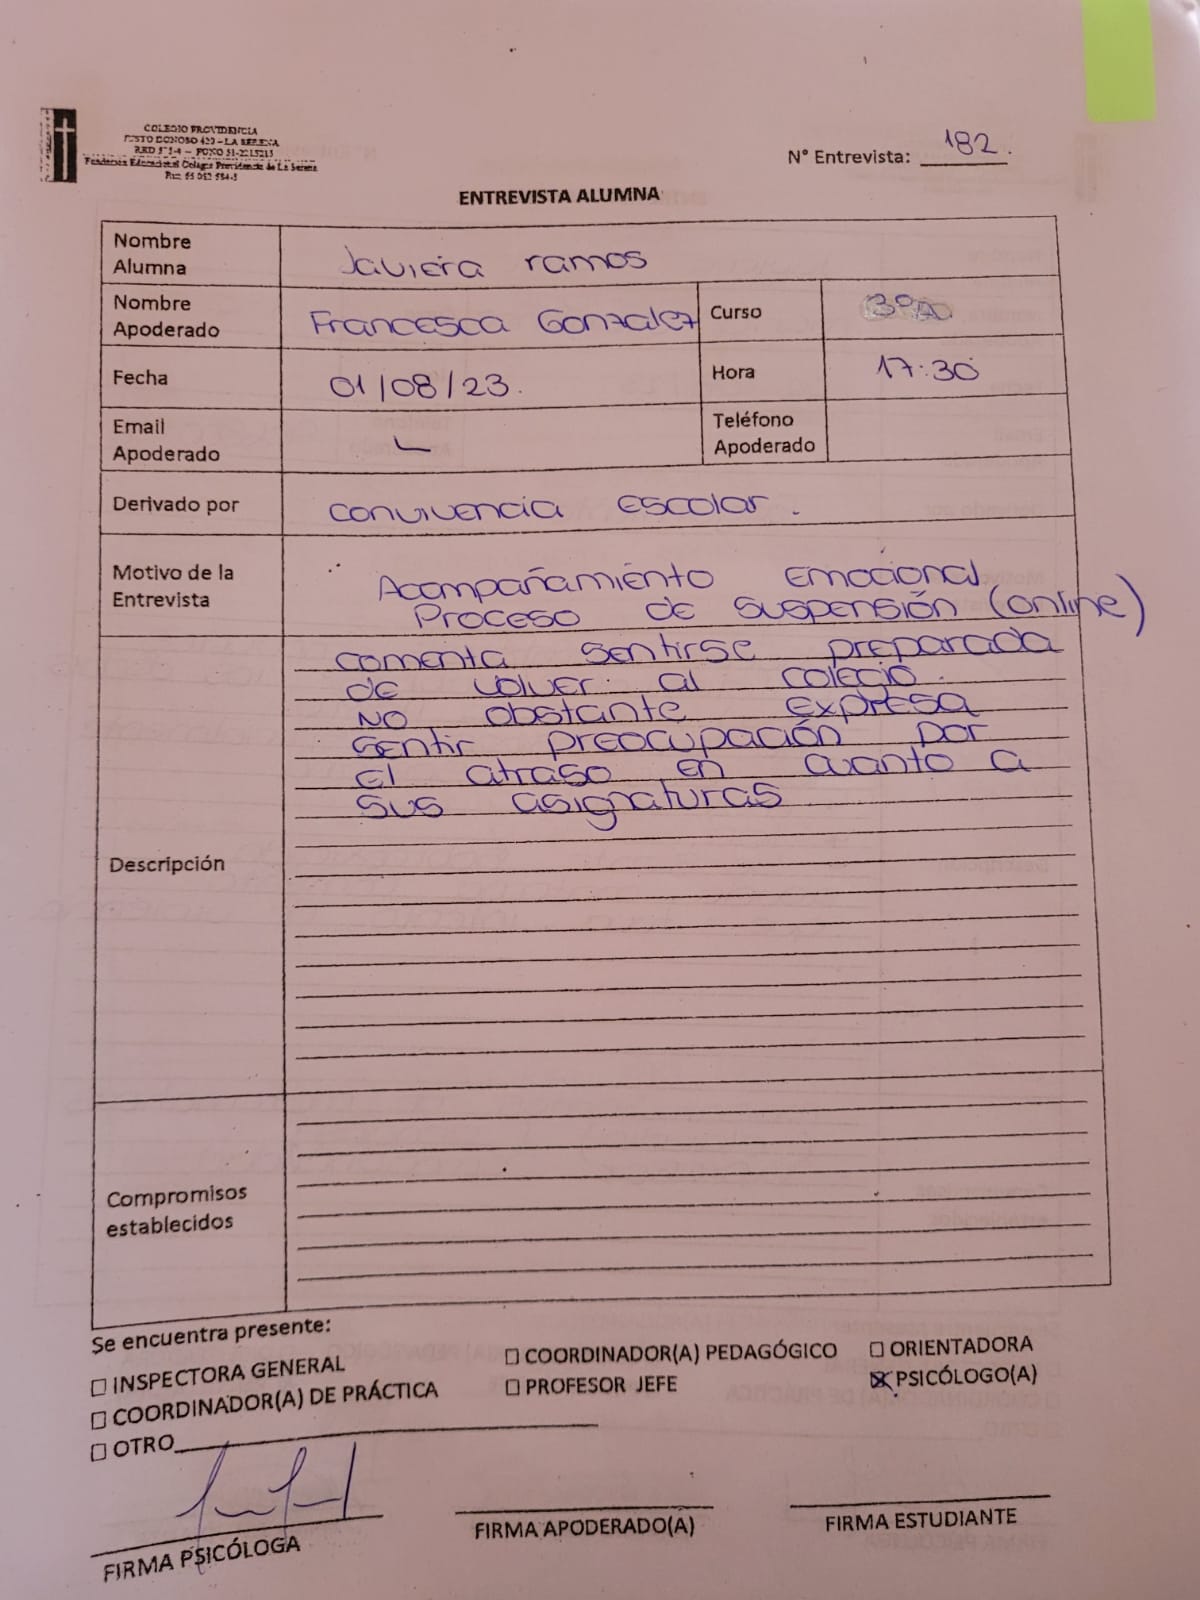 COLEGIO PROVIDENCIA
JUSTO DONOSO 420 - LA SERENA
Fundación Educacional Colegio Providencia de La Serena
N° Entrevista: 182.
ENTREVISTA ALUMNA
Nombre Alumna Javiera ramos
Nombre Apoderado Francesca Gonzalez Curso 3°A
Fecha 01/08/23. Hora 17:30
Email Apoderado
Teléfono Apoderado
Derivado por convivencia escolar.
Motivo de la Entrevista
Acompañamiento Emocional
Proceso de suspensión (online)
Descripción
comenta sentirse preparada
de volver al colegio.
No obstante expresa
sentir preocupación por
el atraso en cuanto a
sus asignaturas
Compromisos establecidos
Se encuentra presente:
☐ INSPECTORA GENERAL ☐ COORDINADOR(A) PEDAGÓGICO ☐ ORIENTADORA
☐ COORDINADOR(A) DE PRÁCTICA ☐ PROFESOR JEFE ☒ PSICÓLOGO(A)
☐ OTRO
FIRMA PSICÓLOGA FIRMA APODERADO(A) FIRMA ESTUDIANTE